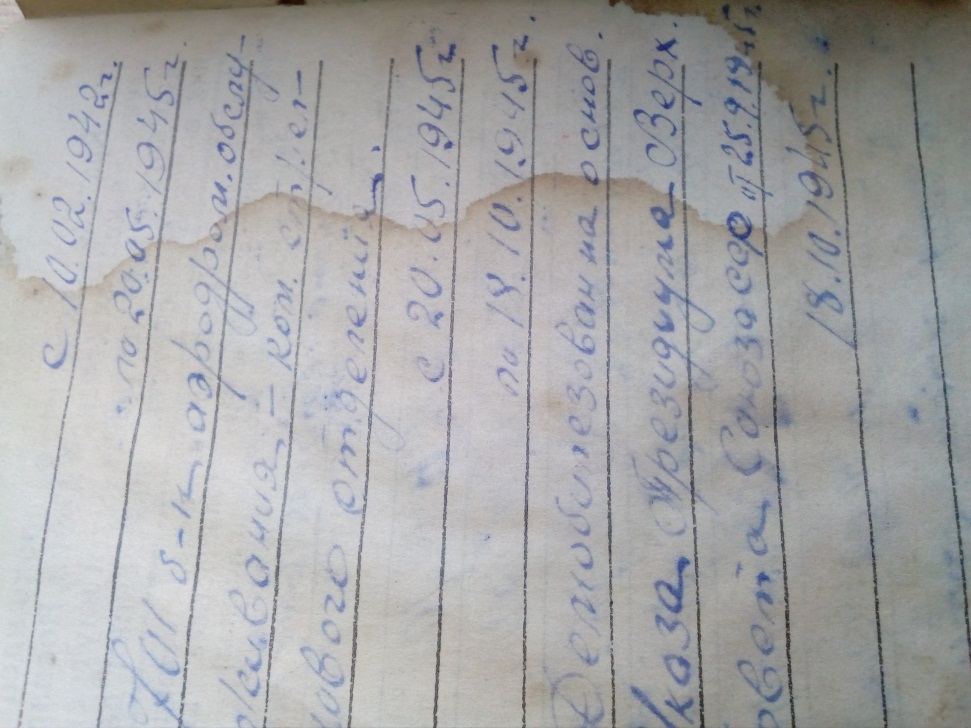 с 10.02.1942г.
по 20.05.1945г.
701 б-н аэродром. обслу-
живания - ком. стрел-
кового отделения.
с 20.05.1945г
по 18.10.1945г.
Демобилизован на основ.
Указа Президиума Верх.
овета Союза ССР от 25.9.1945г
18.10.1945г.